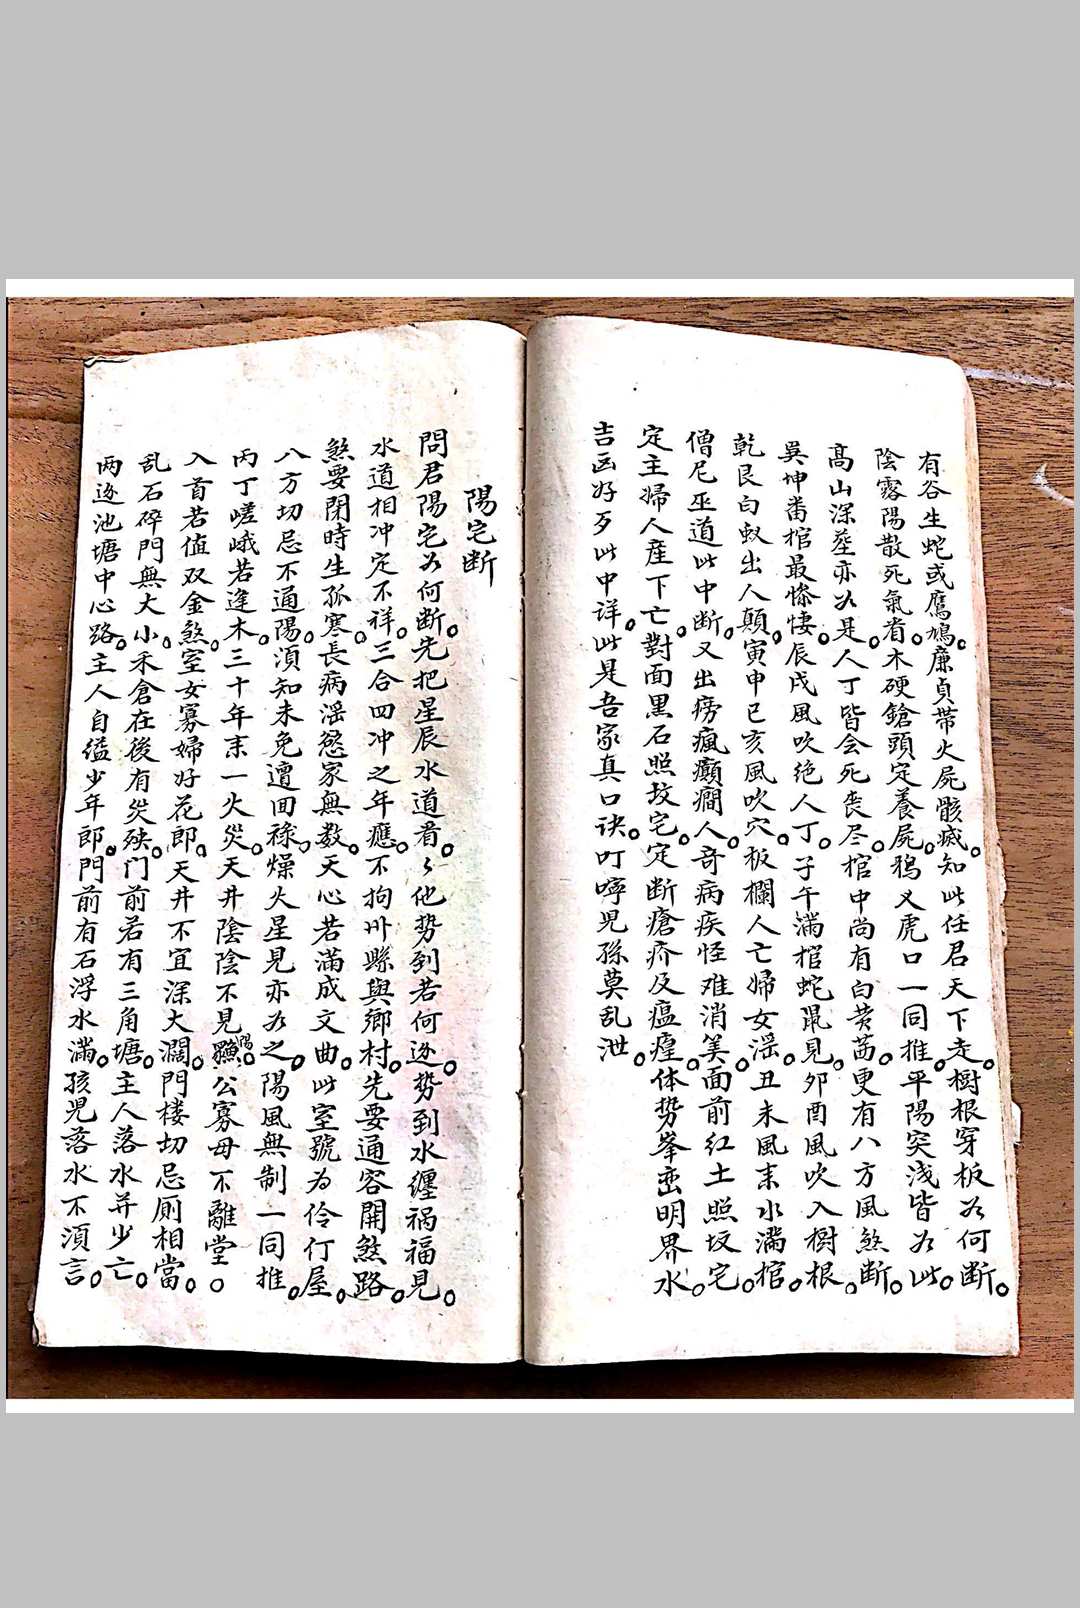 有谷生蛇或鷹鳩。廉貞帶火屍骸烕。知此任君天下走。樹根穿板为何断。
陰霧陽散死氣看。木硬鎗頭定養屍。鴉义虎口一同推。平陽突浅皆为此。
髙山深𦮼亦为是。人丁皆会死丧尽。棺中尚有白黄茜。更有八方風煞断。
巽坤畨棺最惨悽。辰戌風吹绝人丁。子午满棺蛇鼠見。夘酉風吹入樹根。
乾艮白蚁出人顛。寅申巳亥風吹穴。板欄人亡婦女滛。丑未風来水满棺。
僧尼巫道此中断。又出痨瘋癲癎人。奇病疾怪难消美。面前红土照坟宅。
定主婦人産下亡。對面黒石照坟宅。定断瘡疥及瘟瘴。体势峯峦明界水。
吉凶好歹此中详。此是吾家真口诀。叮嚀児孫莫乱泄。
陽宅断
問君陽宅为何断。先把星辰水道看。々他势到若何逐。势到水缠祸福見。
水道相冲定不祥。三合四冲之年應。不拘州縣與鄉村。先要通容開煞路。
煞要閉時生孤寒。長病滛慾家無数。天心若滿成文曲。此室號为伶仃屋。
八方切忌不通陽。湏知未免遭囬禄。燥火星見亦为之。陽風無制一同推。
丙丁嵯峨若逢木。三十年来一火災。天井陰陰不見陽。鰥公寡母不離堂。
入首若值双金煞。室女寡婦好花郎。天井不宜深大濶。門楼切忌厠相當。
乱石碎門無大小。禾倉在後有災殃。门前若有三角塘。主人落水并少亡。
两逐池塘中心路。主人自缢少年郎。門前有石浮水滿。孩児落水不湏言。